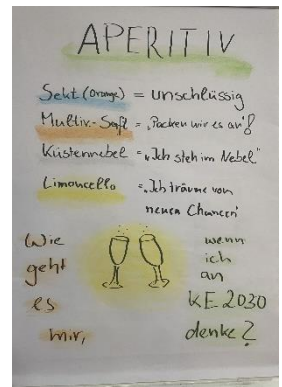 APERITIV
Sekt (Orange) = unschlüssig
Multiv.-Saft = „Packen wir es an“!
Küstennebel = „Ich steh im Nebel“
Limoncello = „Ich träume von
neuen Chancen“
Wie
geht
es
mir,
wenn
ich
an
KE 2030
denke?